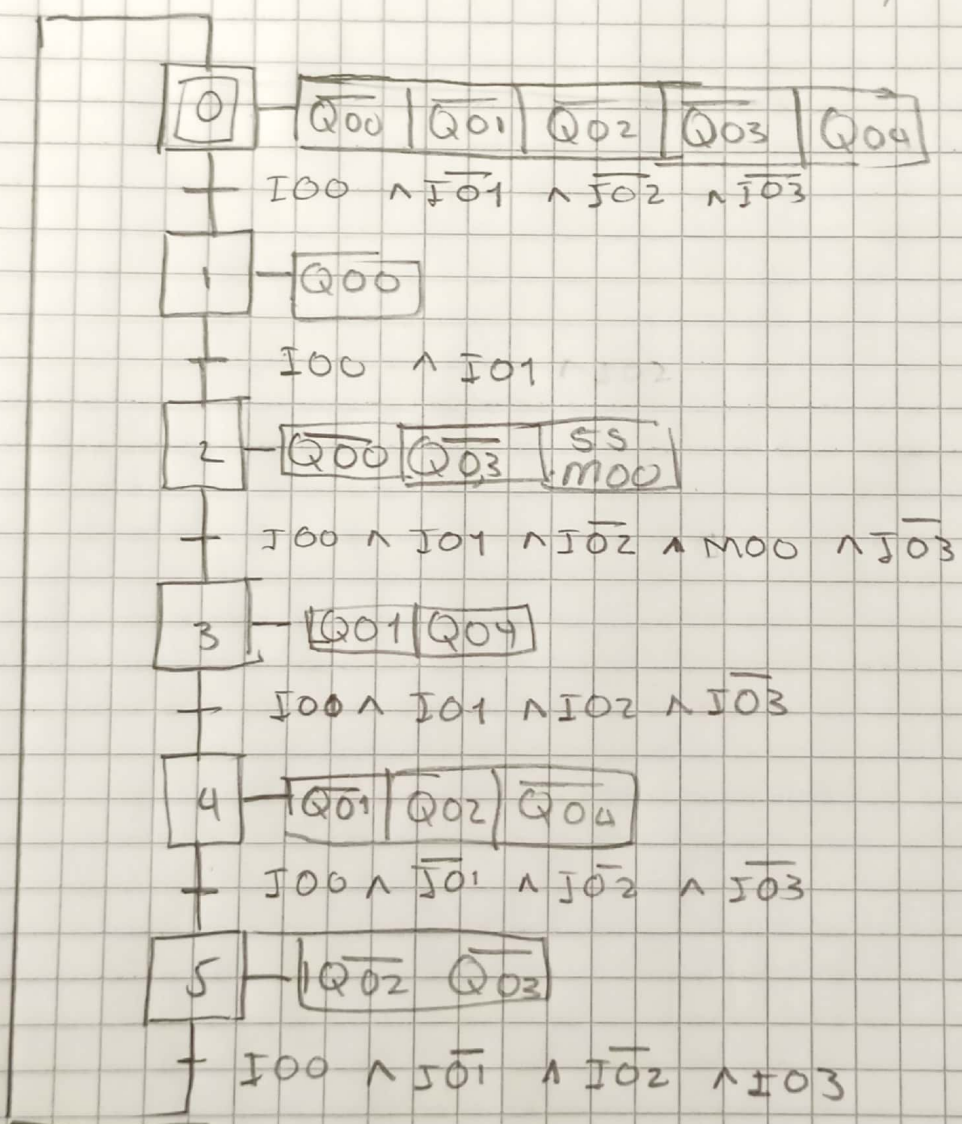 0 Q̅0̅0̅ Q̅0̅1̅ Q̅0̅2̅ Q̅0̅3̅ Q04
I00 ∧ I̅0̅1̅ ∧ I̅0̅2̅ ∧ I̅0̅3̅
1 Q̅0̅0̅
I00 ∧ I01
2 Q̅0̅0̅ Q̅0̅3̅ SS
M00
I00 ∧ I01 ∧ I0̅2̅ ∧ M00 ∧ I0̅3̅
3 Q01 Q04
I00 ∧ I01 ∧ I02 ∧ I0̅3̅
4 Q̅0̅1̅ Q02 Q̅0̅4̅
I00 ∧ I̅0̅1̅ ∧ I0̅2̅ ∧ I0̅3̅
5 Q̅0̅2̅ Q̅0̅3̅
I00 ∧ I0̅1̅ ∧ I0̅2̅ ∧ I03